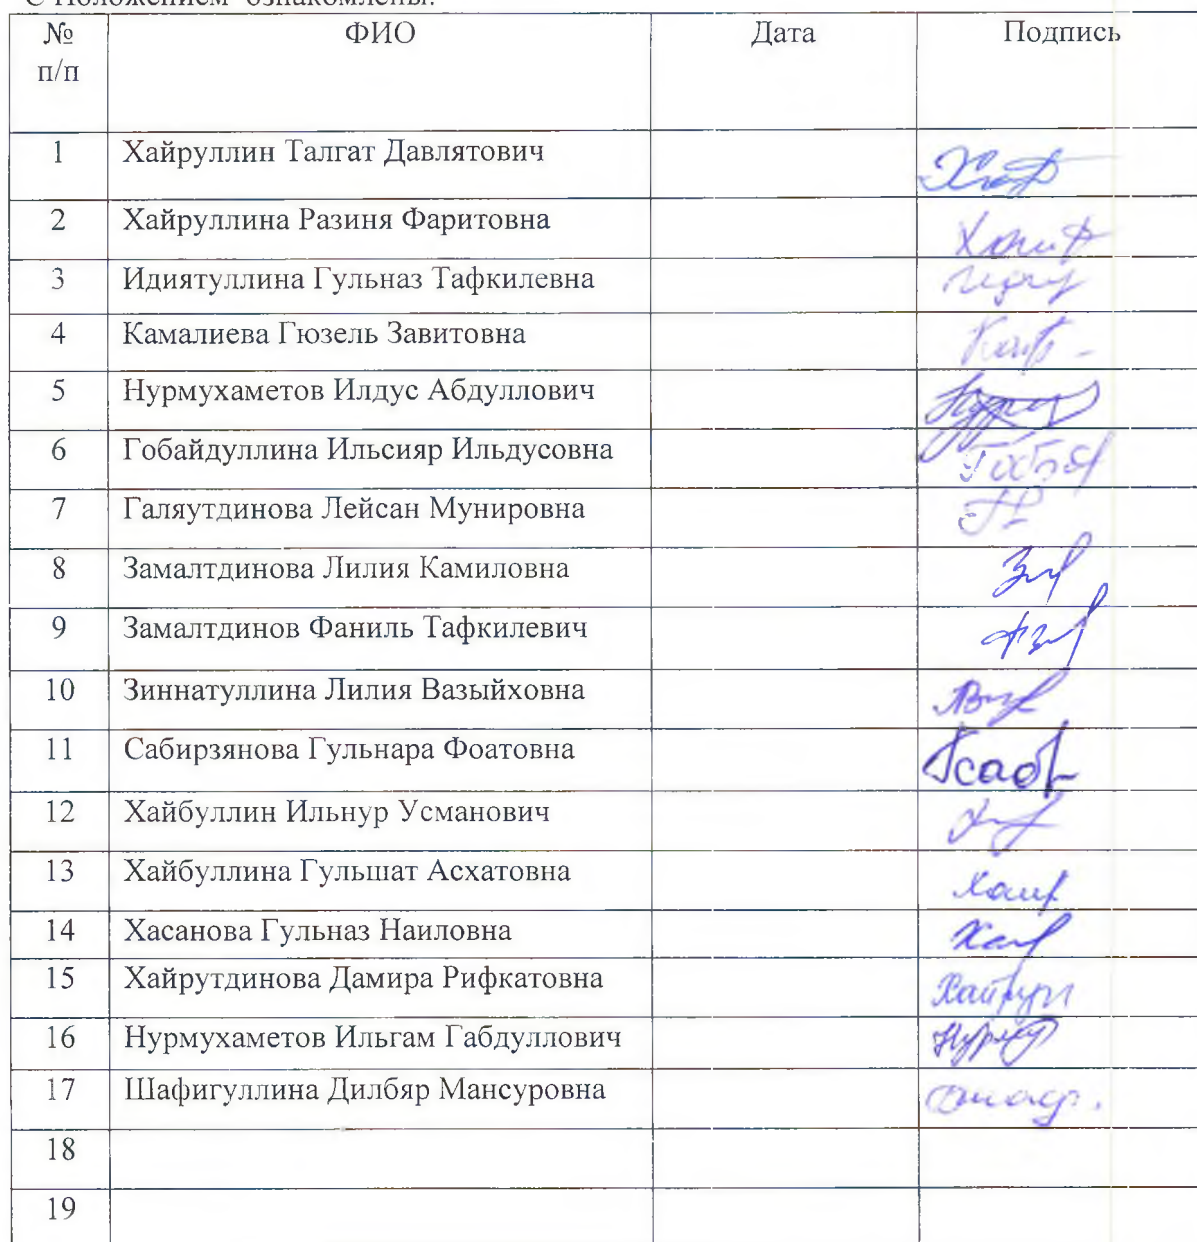 С Положением ознакомлены:
№ п/п ФИО Дата Подпись
1 Хайруллин Талгат Давлятович
2 Хайруллина Разиня Фаритовна
3 Идиятуллина Гульназ Тафкилевна
4 Камалиева Гюзель Завитовна
5 Нурмухаметов Илдус Абдуллович
6 Гобайдуллина Ильсияр Ильдусовна
7 Галяутдинова Лейсан Мунировна
8 Замалтдинова Лилия Камиловна
9 Замалтдинов Фаниль Тафкилевич
10 Зиннатуллина Лилия Вазыйховна
11 Сабирзянова Гульнара Фоатовна
12 Хайбуллин Ильнур Усманович
13 Хайбуллина Гульшат Асхатовна
14 Хасанова Гульназ Наиловна
15 Хайрутдинова Дамира Рифкатовна
16 Нурмухаметов Ильгам Габдуллович
17 Шафигуллина Дилбяр Мансуровна
18
19